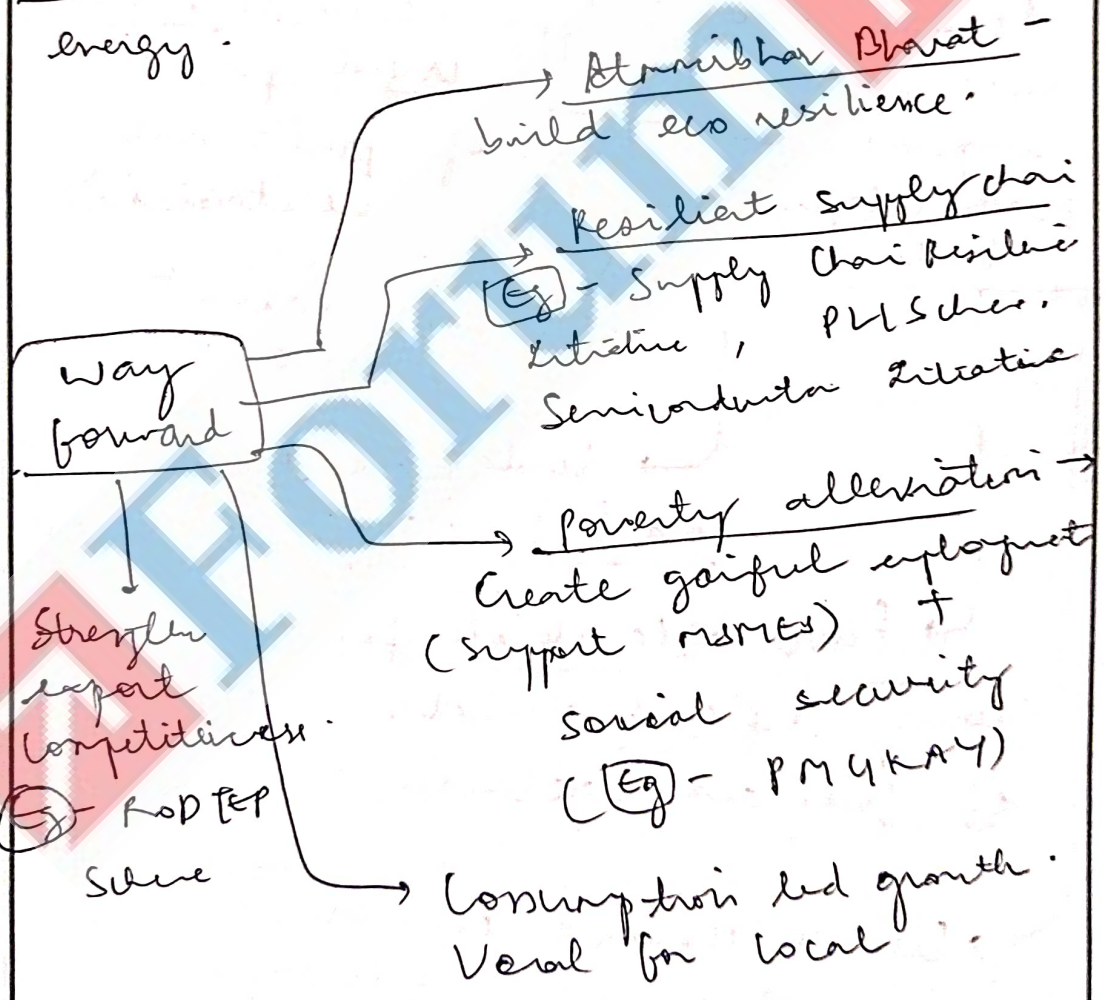 energy.
Atmanirbhar Bharat -
build eco resilience.
Resilient Supply chai
Eg - Supply Chai Resilie
Initiative, PLI Scheme.
Semiconductor Initiative
Way
forward
Poverty alleviation →
Create gainful employment
(Support MSMEs) +
social security
(Eg - PMGKAY)
Strengthen
export
Competitiveness.
Eg - RoDTEP
Scheme
Consumption led growth.
Vocal for local.
Forum